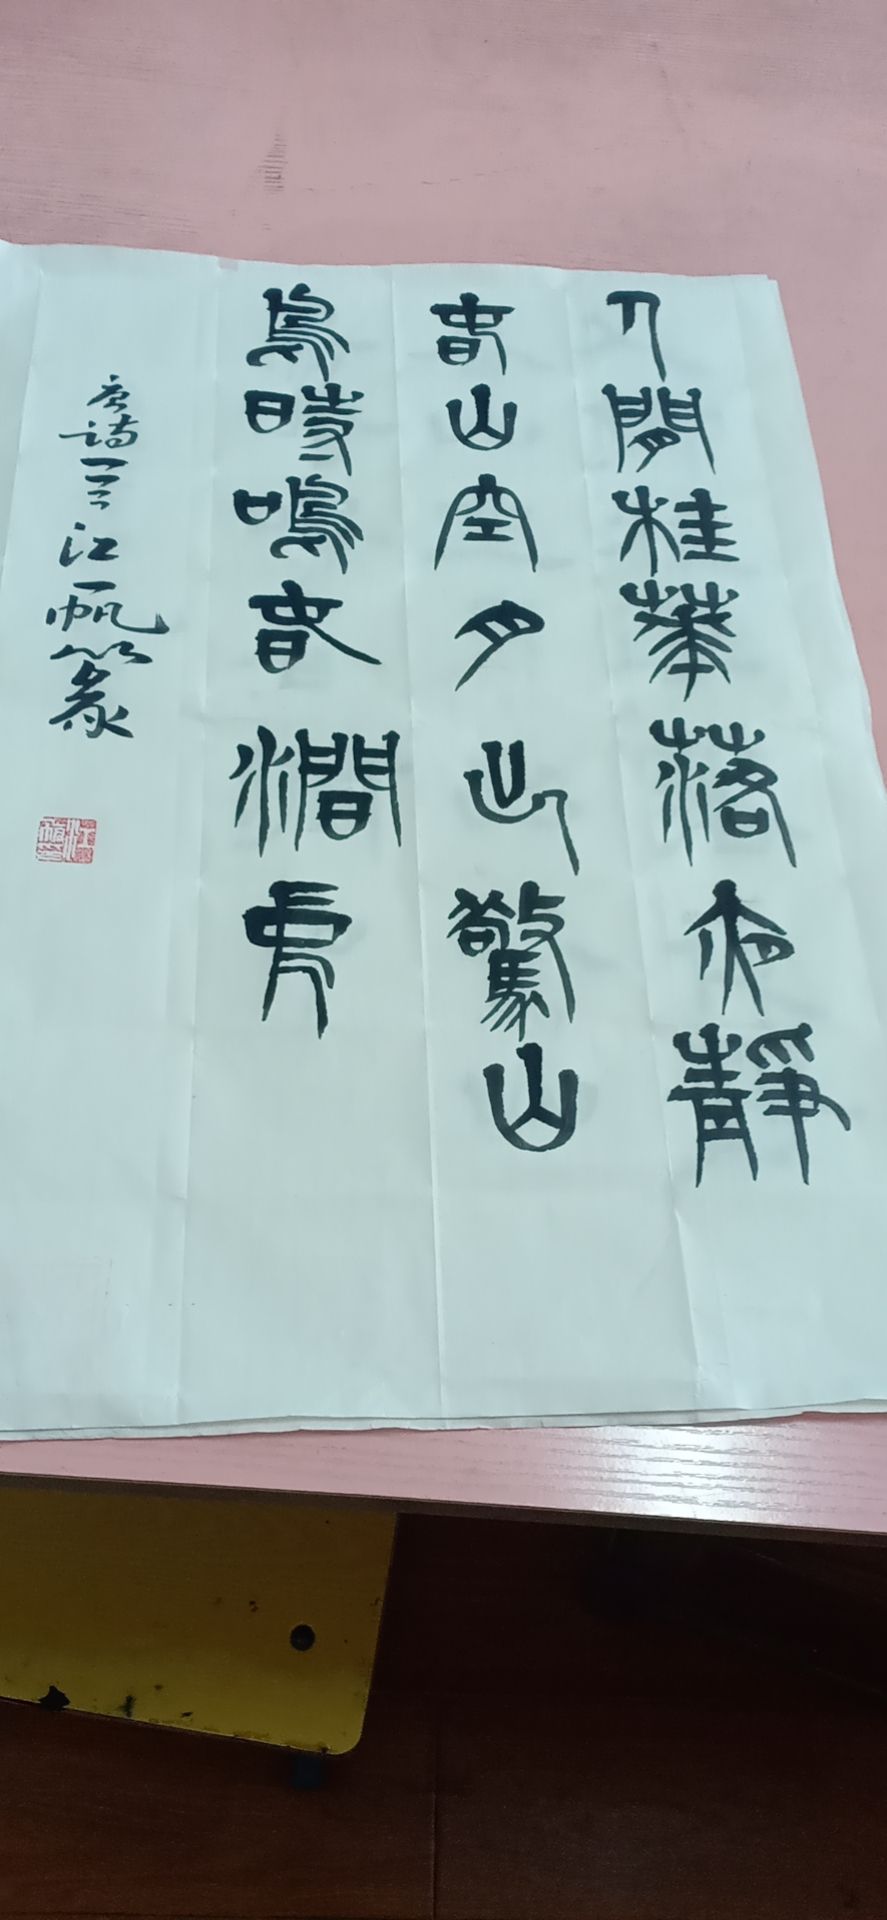 人閒桂華落夜靜
春山空月出驚山
鳥時鳴春澗中
唐詩一首江一帆篆